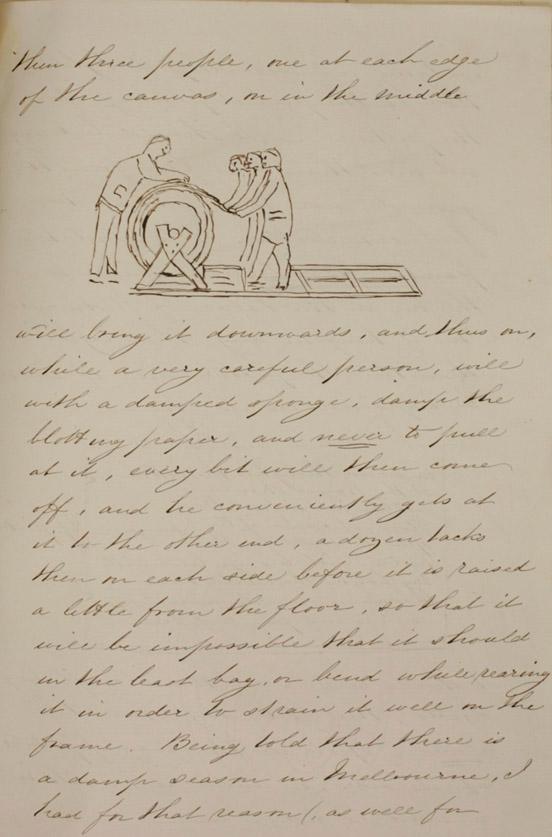 then three people, one at each edge
of the canvas, on in the middle
will bring it downwards, and, thus on,
while a very careful person, will
with a damped sponge, damp the
blotting paper, and never to pull
at it, every bit will then come
off, and he conveniently gets at
it to the other end, a dozen tacks
then on each side before it is raised
a little from the floor, so that it
will be impossible that it should
in the least bag, or bend while rearing
it in order to strain it well on the
frame. Being told that there is
a damp season in Melbourne, I
had for that reason (, as well for